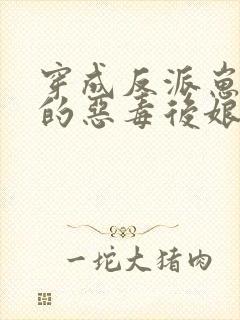 穿成反派崽
的惡毒後娘
一坨大猪肉